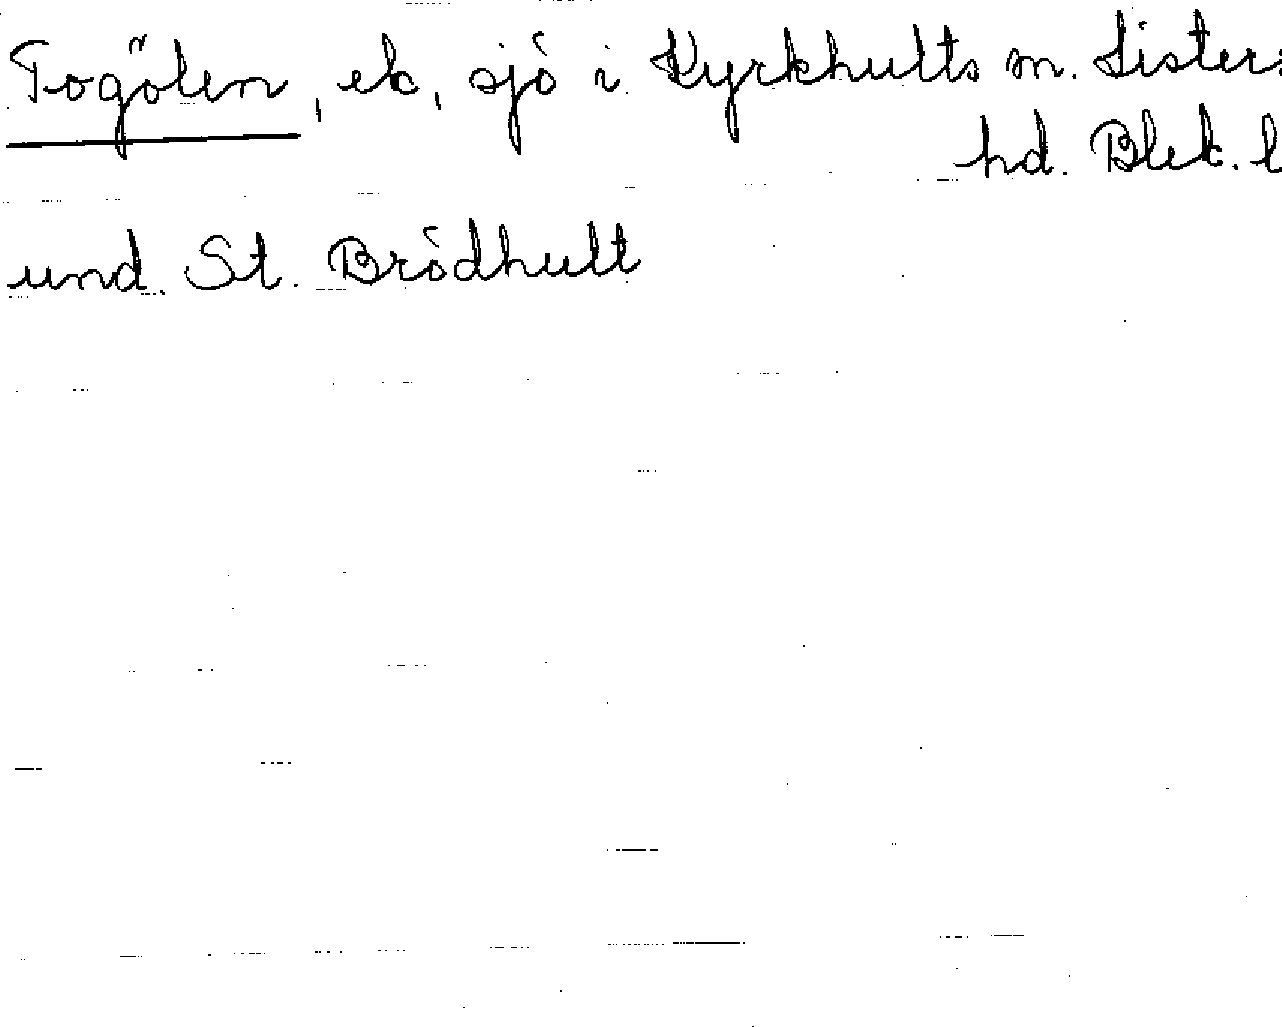 Togölen, ek, sjö i Kyrkhults sn. Listers
hd. Blek. l
und. St. Brödhult